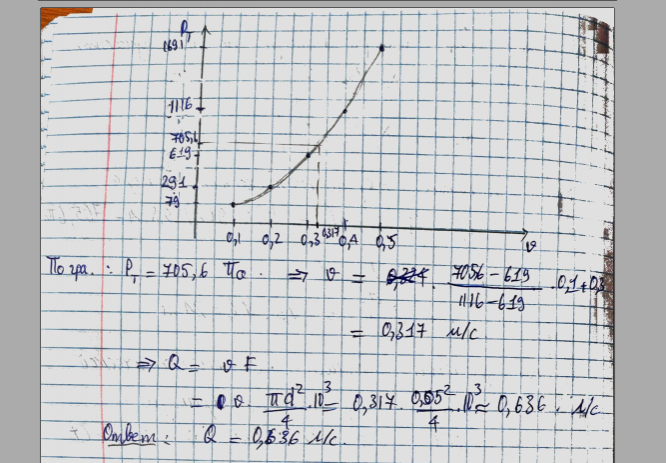 P_T
1691
1116
705,6
619
291
79
0,1 0,2 0,3 0,317 0,4 0,5 v
По гра. : P_T = 705,6 Па ⇒ v = (7056 - 619)/(1116 - 619) · 0,1 + 0,3
= 0,317 м/с
⇒ Q = v F
= v · πd²/4 · 10³ = 0,317 · 0,05²/4 · 10³ ≈ 0,636 л/с
Ответ: Q = 0,636 л/с.